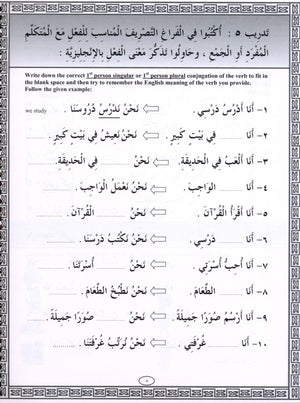 تدريب ٥ : اُكْتُبُوا فِي الْفَرَاغِ التَّصْرِيفَ الْمُنَاسِبَ لِلْفِعْلِ مَعَ الْمُتَكَلِّمِ
الْمُفْرَدِ أو الْجَمْعِ ، وحَاوِلُوا تَذَكُّرَ مَعْنَى الْفِعْلِ بِالإِنْجِلِيزِيَّةِ :
Write down the correct 1st person singular or 1st person plural conjugation of the verb to fit in
the blank space and then try to remember the English meaning of the verb you provide.
Follow the given example:
١- أَنَا أَدْرُسُ دَرْسِي . نَحْنُ نَدْرُسُ دُرُوسَنَا . we study
٢- أَنَا فِي بَيْتٍ كَبِيرٍ . نَحْنُ نَعِيشُ فِي بَيْتٍ كَبِيرٍ .
٣- أَنَا أَلْعَبُ فِي الْحَدِيقَةِ. نَحْنُ فِي الْحَدِيقَةِ.
٤- أَنَا الْوَاجِبَ . نَحْنُ نَعْمَلُ الْوَاجِبَ .
٥- أَنَا أَقْرَأُ الْقُرْآنَ . نَحْنُ الْقُرْآنَ .
٦- أَنَا دَرْسِي . نَحْنُ نَكْتُبُ دَرْسَنَا .
٧- أَنَا أُحِبُّ أُسْرَتِي . نَحْنُ أُسْرَتَنَا .
٨- أَنَا الطَّعَامَ. نَحْنُ نَطْبُخُ الطَّعَامَ.
٩- أَنَا أَرْسُمُ صُورَةً جَمِيلَةً. نَحْنُ صُوَرًا جَمِيلَةً .
١٠- أَنَا غُرْفَتِي . نَحْنُ نُرَتِّبُ غُرْفَتَنَا .